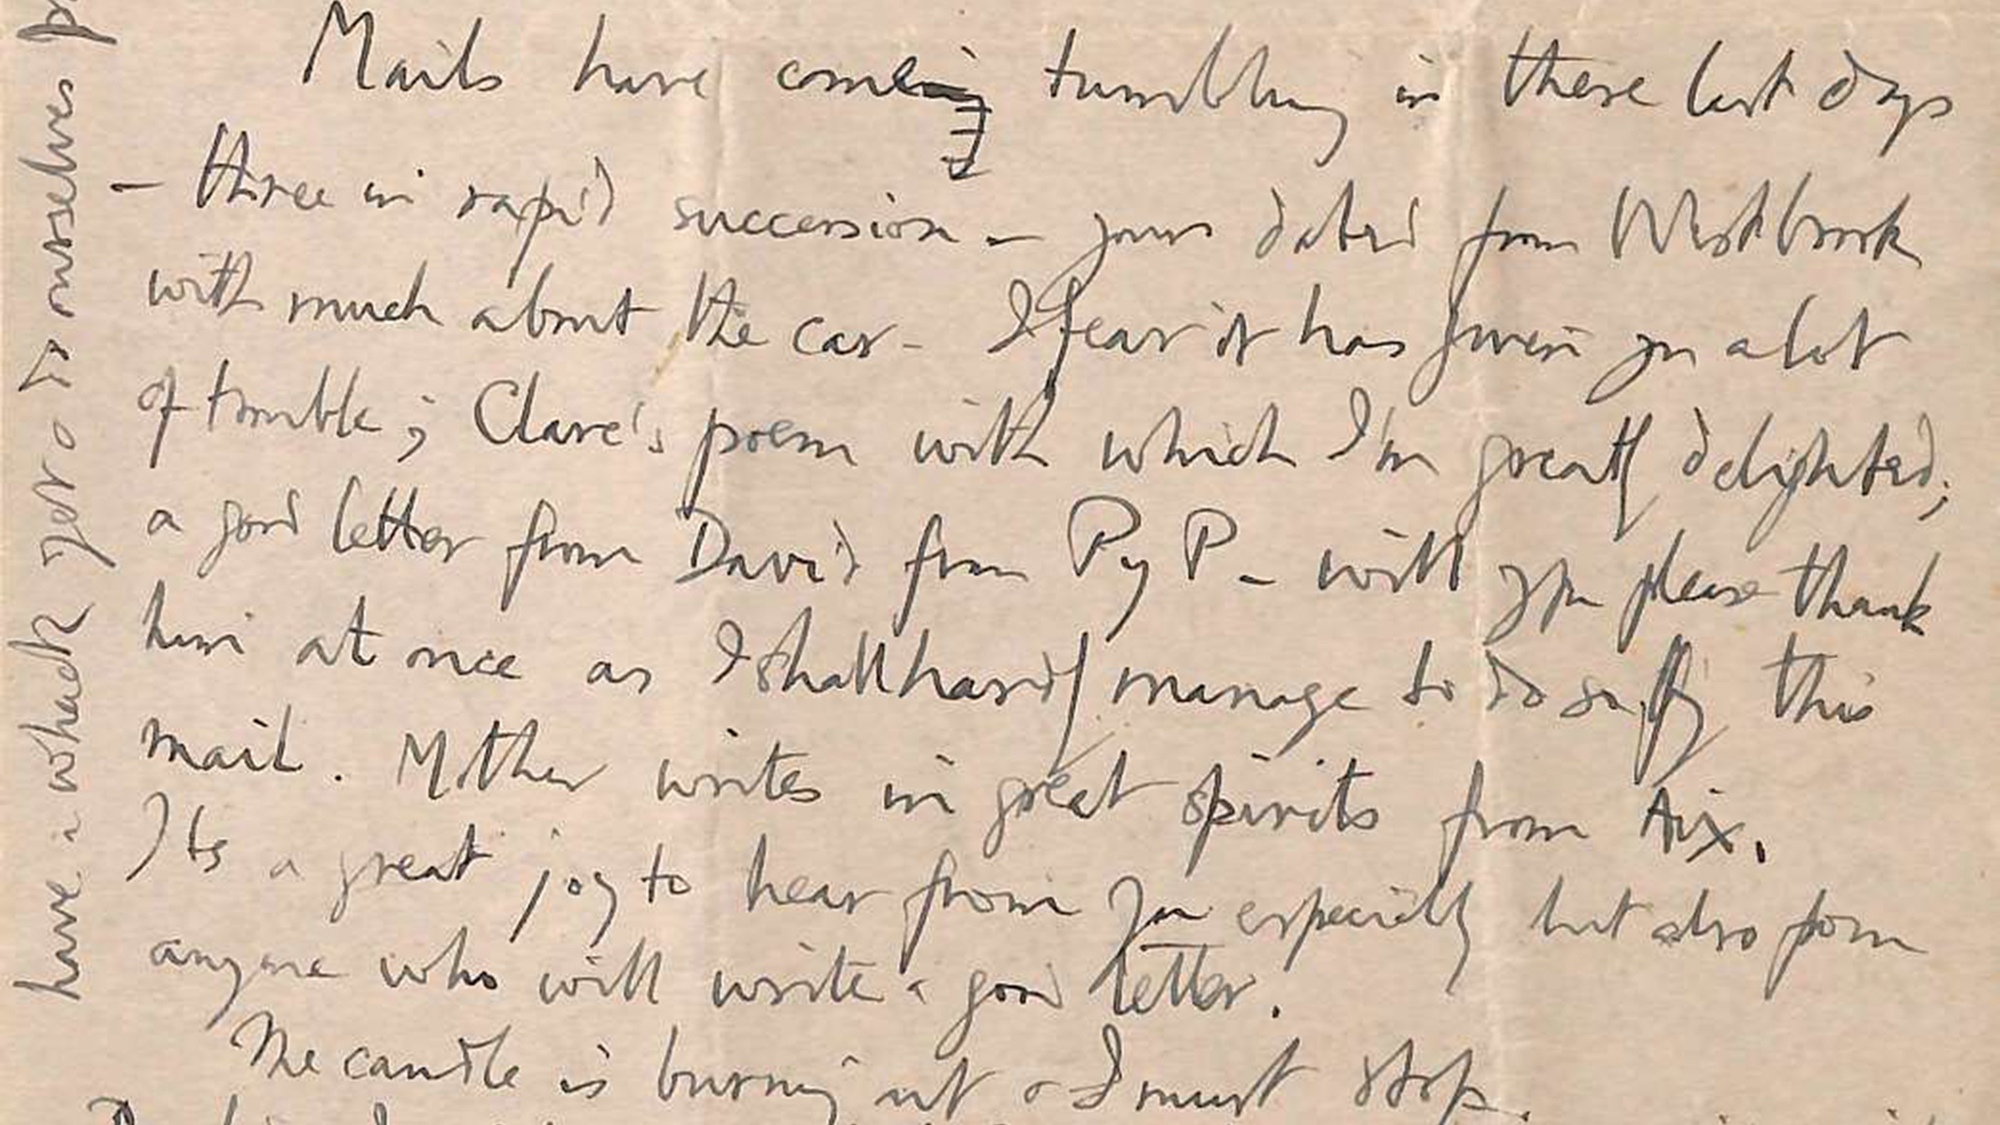 Mails have come tumbling in these last days
— three in rapid succession — yours dated from Westbrook
with much about the car – I fear it has given you a lot
of trouble; Clare's poem with which I'm greatly delighted;
a good letter from David from Py P – will you please thank
him at once as I shall hardly manage to do so by this
mail. Mother writes in great spirits from Aix.
Its a great joy to hear from you especially but also from
anyone who will write a good letter.
The candle is burning out & I must stop.
have a whack yet & to ourselves